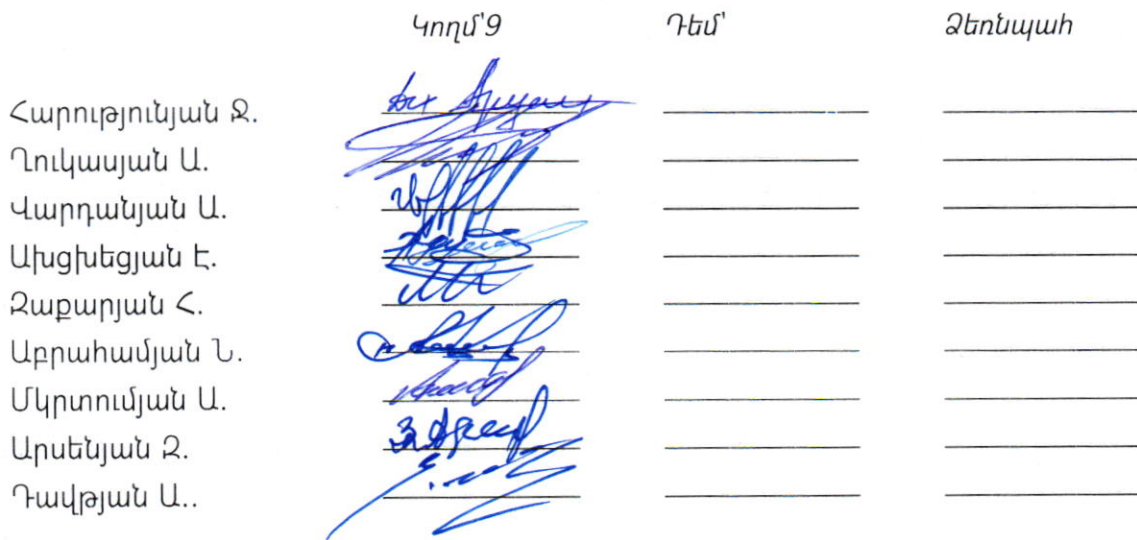 Կողմ՝9 Դեմ՝ Ձեռնպահ
Հարությունյան Ջ.
Ղուկասյան Ա.
Վարդանյան Ա.
Ախցխեցյան Է.
Զաքարյան Հ.
Աբրահամյան Ն.
Մկրտումյան Ա.
Արսենյան Զ.
Դավթյան Ա..